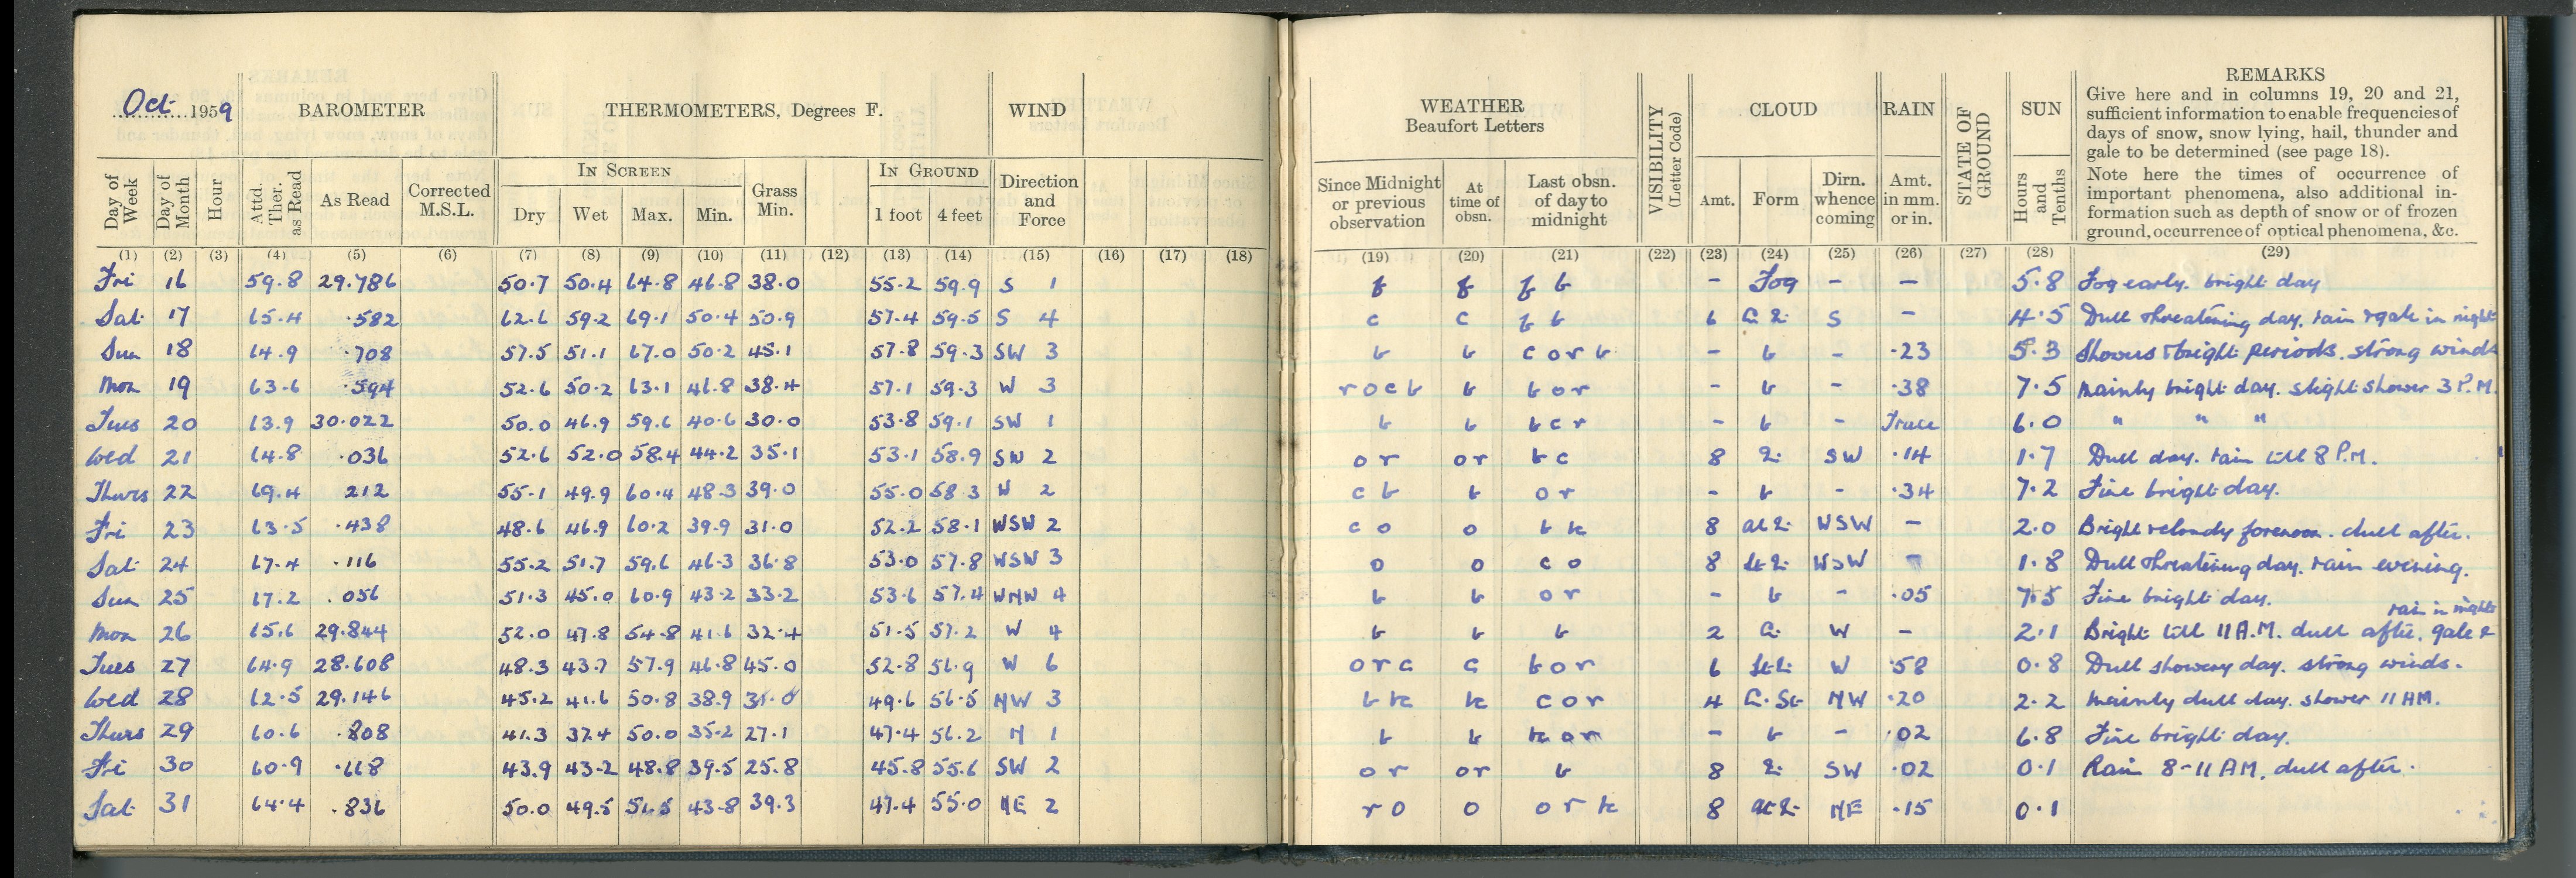 Oct 1959 BAROMETER THERMOMETERS, Degrees F. WIND
Day of Week Day of Month Hour Attd. Ther. as Read As Read Corrected M.S.L. IN SCREEN Dry Wet Max. Min. Grass Min. IN GROUND 1 foot 4 feet Direction and Force
(1) (2) (3) (4) (5) (6) (7) (8) (9) (10) (11) (12) (13) (14) (15) (16) (17) (18)
Fri 16 59.8 29.786 50.7 50.4 64.8 46.8 38.0 55.2 59.9 S 1
Sat 17 65.4 .582 62.6 59.2 69.1 50.4 50.9 57.4 59.5 S 4
Sun 18 64.9 .708 57.5 51.1 67.0 50.2 45.1 57.8 59.3 SW 3
Mon 19 63.6 .594 52.6 50.2 63.1 46.8 38.4 57.1 59.3 W 3
Tues 20 63.9 30.022 50.0 46.9 59.6 40.6 30.0 53.8 59.1 SW 1
Wed 21 64.8 .036 52.6 52.0 58.4 44.2 35.1 53.1 58.9 SW 2
Thurs 22 69.4 212 55.1 49.9 60.4 48.3 39.0 55.0 58.3 W 2
Fri 23 63.5 .438 48.6 46.9 60.2 39.9 31.0 52.2 58.1 WSW 2
Sat 24 67.4 .116 55.2 51.7 59.6 46.3 36.8 53.0 57.8 WSW 3
Sun 25 67.2 .056 51.3 45.0 60.9 43.2 33.2 53.6 57.4 WNW 4
Mon 26 65.6 29.844 52.0 47.8 54.8 41.6 32.4 51.5 57.2 W 4
Tues 27 64.9 28.608 48.3 43.7 57.9 46.8 45.0 52.8 56.9 W 6
Wed 28 62.5 29.146 45.2 41.6 50.8 38.9 31.0 49.6 56.5 NW 3
Thurs 29 60.6 .808 41.3 37.4 50.0 35.2 27.1 47.4 56.2 N 1
Fri 30 60.9 .668 43.9 43.2 48.8 39.5 25.8 45.8 55.6 SW 2
Sat 31 64.4 .836 50.0 49.5 43.8 39.3 47.4 55.0 NE 2
WEATHER Beaufort Letters VISIBILITY (Letter Code) CLOUD RAIN STATE OF GROUND SUN REMARKS
Give here and in columns 19, 20 and 21,
sufficient information to enable frequencies of
days of snow, snow lying, hail, thunder and
gale to be determined (see page 18).
Note here the times of occurrence of
important phenomena, also additional in-
formation such as depth of snow or of frozen
ground, occurrence of optical phenomena, &c.
Since Midnight or previous observation At time of obsn. Last obsn. of day to midnight Amt. Form Dirn. whence coming Amt. in mm. or in. Hours and Tenths
(19) (20) (21) (22) (23) (24) (25) (26) (27) (28) (29)
f f f b - Fog - - 5.8 Fog early. bright day
c c b 6 S - 4.5 Dull threatening day. rain & gale in night
b b c o r b - b - .23 5.3 Showers & bright periods. strong winds
r o c b b b o r - b - .38 7.5 Mainly bright day. slight shower 3 P.M.
b b b c r - b - Trace 6.0 " " "
o r o r b c 8 SW .14 1.7 Dull day. rain till 8 P.M.
c b b o r - b - .34 7.2 Fine bright day.
c o o b k 8 WSW - 2.0 Bright & cloudy forenoon. dull after.
o o c o 8 WSW 1.8 Dull threatening day. rain evening.
b b o r - b - .05 7.5 Fine bright day.
b b b 2 W - 2.1 Bright till 11 A.M. dull after. gale & rain in night
o r c c b o r 6 W .58 0.8 Dull showery day. strong winds.
b k k c o r 4 C. St NW .20 2.2 Mainly dull day. shower 11 AM.
b b - b - .02 6.8 Fine bright day.
o r o r b 8 SW .02 0.1 Rain 8-11 AM. dull after.
r o o o r k 8 NE .15 0.1